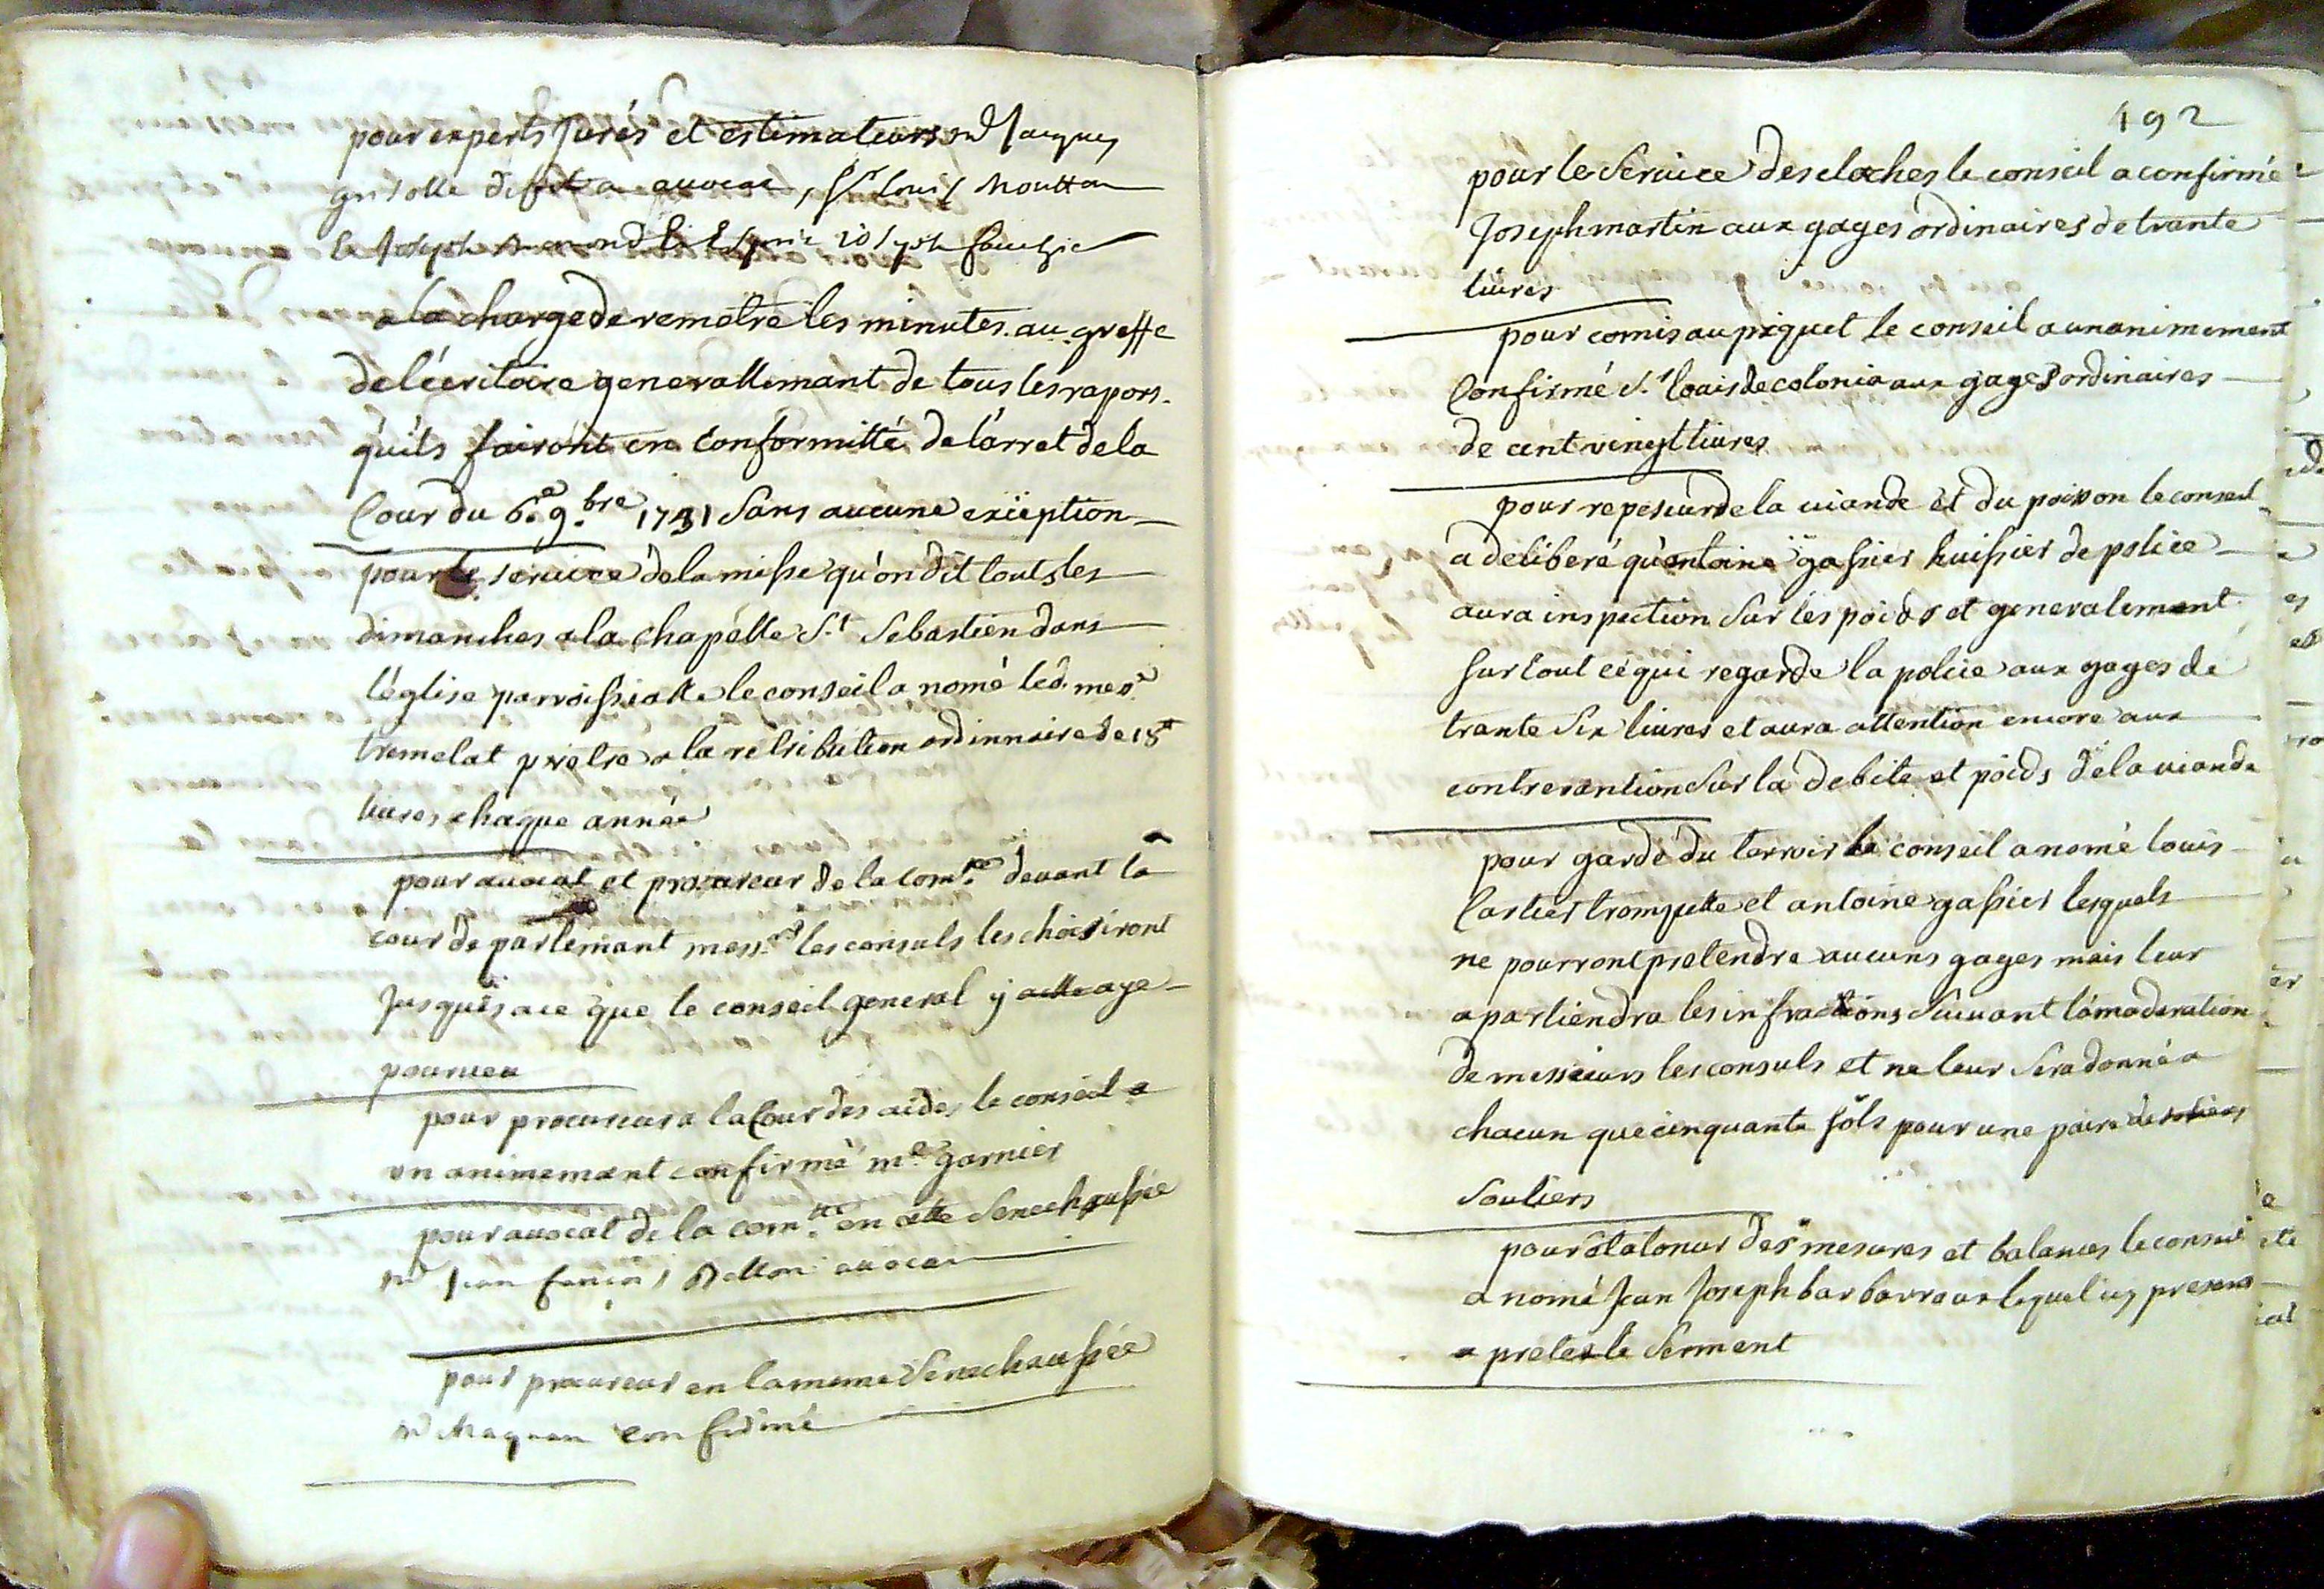 pour experts jurés et estimateurs Mr Jacques
grisolle avocat, Sr louis Moutton
le Joseph
a la charge de remetre les minutes au greffe
de l'écritoire generallemant de tous les rapors
qu'ils fairont en conformitté de l'arret de la
Cour du 6.e 9.bre 1731 sans aucune exception
pour le service de la messe qu'on dit touts les
dimanches a la chapélle S.t Sebastien dans
l'église parroissialle le conseil a nomé led. mes.re
tremelat prétre a la retribution ordinnaire de 18
livres chaque année
pour avocat et procureur de la com.té devant la
cour de parlemant mess.rs les consuls les choisiront
jusques a ce que le conseil general y aye
pourveu
pour procureur a la Cour des aides le conseil a
unanimemant confirmé m.e garnier
pour avocat de la com.té en cette Senechaussée
Mr Jean avocat
pour procureur en la meme Senechaussée
Mr confirmé
192
pour le Service des cloches le conseil a confirmé
Joseph martin aux gages ordinaires de trante
livres
pour comis au piquet le conseil a unanimement
Confirmé S.r louis de colonia aux gages ordinaires
de cent vingt livres
pour repeseur de la viande et du poisson le conseil
a deliberé qu'entoine gassier huissier de police
aura inspection sur les poids et generalement
sur tout ce qui regarde la police aux gages de
trante six livres et aura attention encore aux
contrevantion sur la debite et poids de la viande
pour garde du terroir le conseil a nomé louis
Cartier trompette et antoine gassier lesquels
ne pourront pretendre aucuns gages mais leur
apartiendra les infractions suivant la moderation
de messieurs les consuls et ne leur sera donné a
chacun que cinquante sols pour une paire de
Souliers
pour étaloneur des mesures et balances le conseil
a nomé Jean Joseph barbarroux lequel icy presens
a preté le Serment